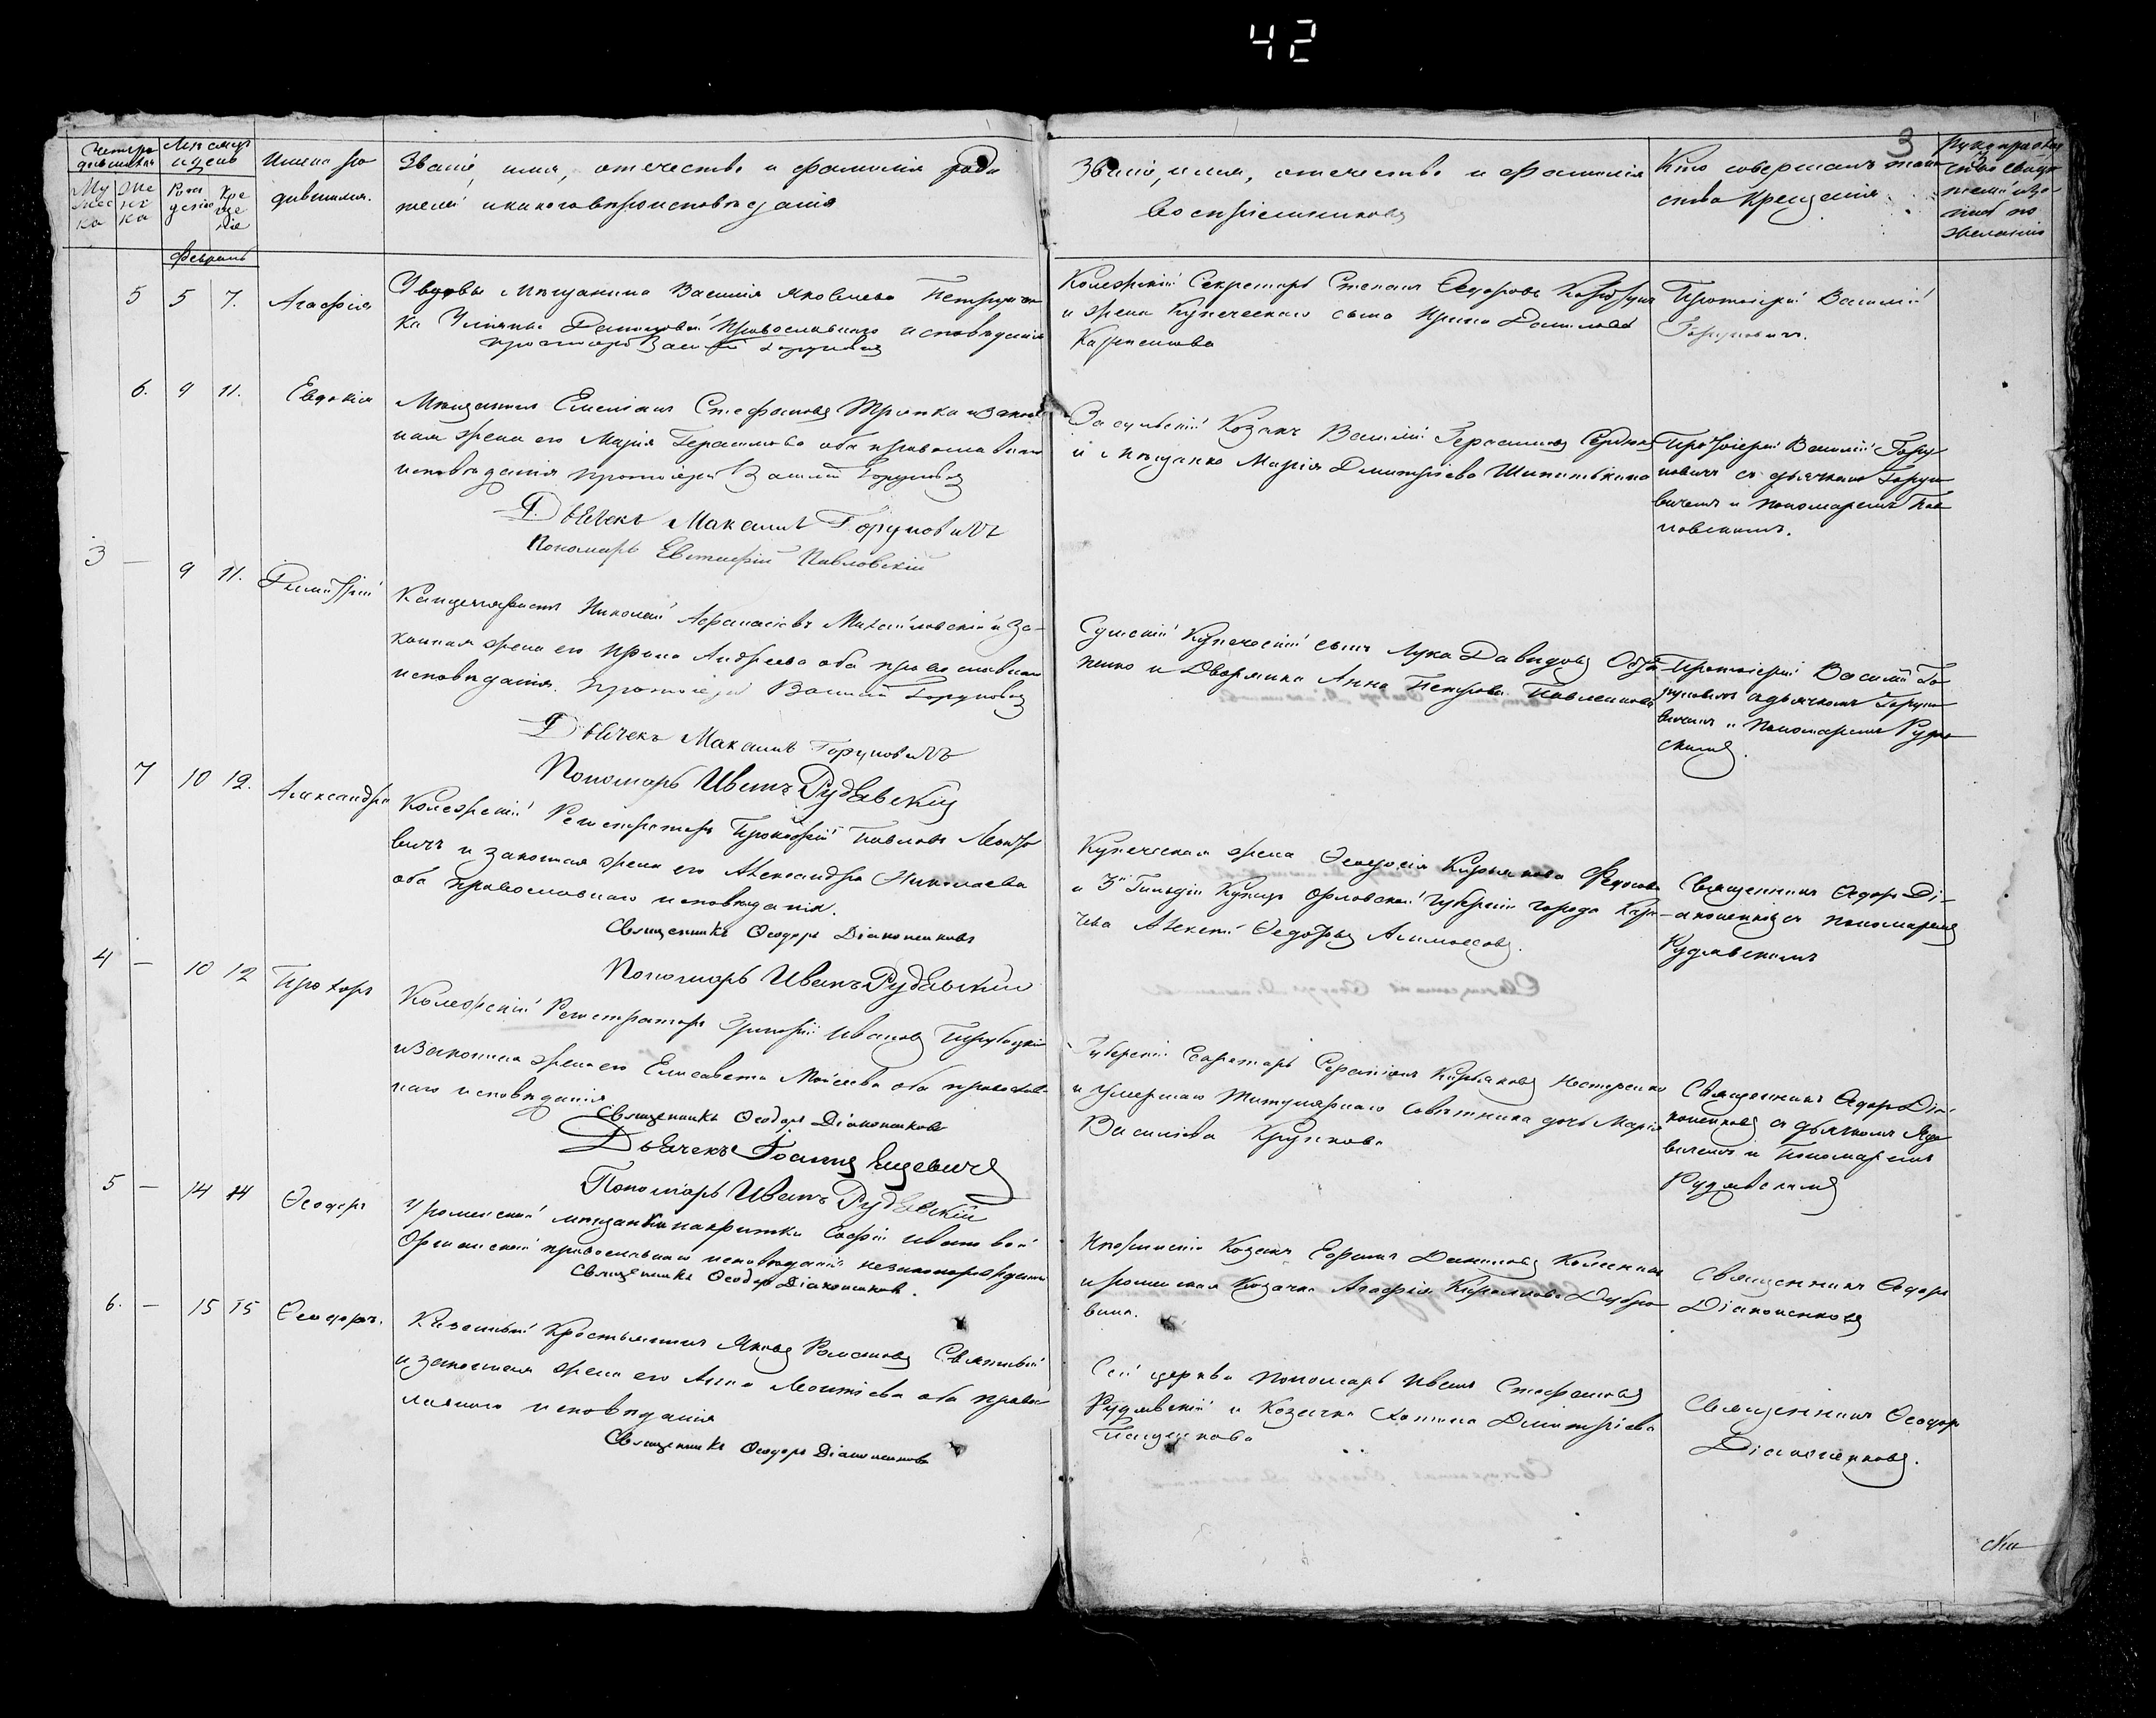 42
3
Мѣсяцъ
и день
Имена ро
дившихся.
Званіе, имя, отечество и фамилія роди
телей и какого вѣроисповѣданія
Званіе, имя, отечество и фамилія
воспріемниковъ
Кто совершалъ таин
ство крещенія
Рукоприкла
ство свидѣ
желанію
Му
жес
ка
Же
нс
ка
Рож
денія
Кре
ще
ніе
Февраль
5 5 7. Агафія
У вдовы Мѣщанина Василія Яковлева
ка Ульяны православнаго исповѣданія
протоіерей Василій Горуновичъ
Колежскій Секретарь Степанъ Ѳедоровъ
и жена Купеческаго сына Ирина Данилова
Протоіерей Василій
Горуновичъ.
6. 9 11. Евдокія
Мѣщанинъ Емеліанъ Стефановъ и закон
ная жена его Марія Герасимова оба православнаго
исповѣданія протоіерей Василій Горуновичъ
Дьячекъ Максимъ Горуновичъ
Пономарь Евстафій Павловскій
Козакъ Василій Герасимовъ Сердюкъ
и мѣщанка Марія Дмитріева
Протоіерей Василій Гору
новичъ съ дьячкомъ Горуно
вичемъ и пономаремъ Пав
ловскимъ.
3 — 9 11. Димитрій
Канцеляристъ Николай Афанасіевъ Михайловскій и за-
конная жена его Ирина Андреева оба православнаго
исповѣданія. протоіерей Василій Горуновичъ
Дьячекъ Максимъ Горуновичъ
Пономарь Иванъ Рудявскій
Сумскій Купеческій сынъ Лука Давидовъ
и Дворянка Анна Петрова Павленкова
Протоіерей Василій Го
руновичъ съ дьячкомъ Горуно
вичемъ и Пономаремъ Рудяв
скимъ.
7 10 12. Александра
Колежскій Регистраторъ Прокофій Павловъ
вичъ и законная жена его Александра Николаева
оба православнаго исповѣданія.
Священникъ Ѳеодоръ Діаконенковъ
Пономарь Иванъ Рудявскій
Купеческая жена Ѳеодосія Кирьякова
и 3й Гильдіи Купецъ Орловской Губерніи города Кара
чева Алексѣй Ѳедоровъ
Священникъ Ѳедоръ Ді-
аконенковъ съ пономаремъ
Рудявскимъ
4 — 10 12 Прохоръ
Колежскій Регистраторъ Григорій Ивановъ
и законная жена его Елисавета Моисеева оба православ
наго исповѣданія
Священникъ Ѳеодоръ Діаконенковъ
Дьячекъ Іоаннъ
Пономарь Иванъ Рудявскій
Губерскій Секретарь Кирьяковъ Нестеренко
и умершаго Титулярнаго Совѣтника дочь Марія
Василіева Крупкова
Священникъ Ѳедоръ Діа
коненковъ съ дьячкомъ
вичемъ и Пономаремъ
Рудявскимъ
5 — 14 14 Ѳеодоръ
У роменской мѣщанки покритки Софіи Ивановой
православнаго исповѣданія незаконорожденный
Священникъ Ѳеодоръ Діаконенковъ.
Козакъ Ефремъ Даниловъ
и роменская Козачка Агафія Кириллова Дубро
вина.
Священникъ Ѳедоръ
Діаконенковъ
6. — 15 15 Ѳеодоръ.
Казенный Крестьянинъ Яковъ Романовъ
и законная жена его Анна Леонтіева оба правос
лавнаго исповѣданія
Священникъ Ѳеодоръ Діаконенковъ
Сей церкви пономарь Иванъ Стефановъ
Рудявскій и Козачка Дмитріева
Священникъ Ѳеодоръ
Діаконенковъ.